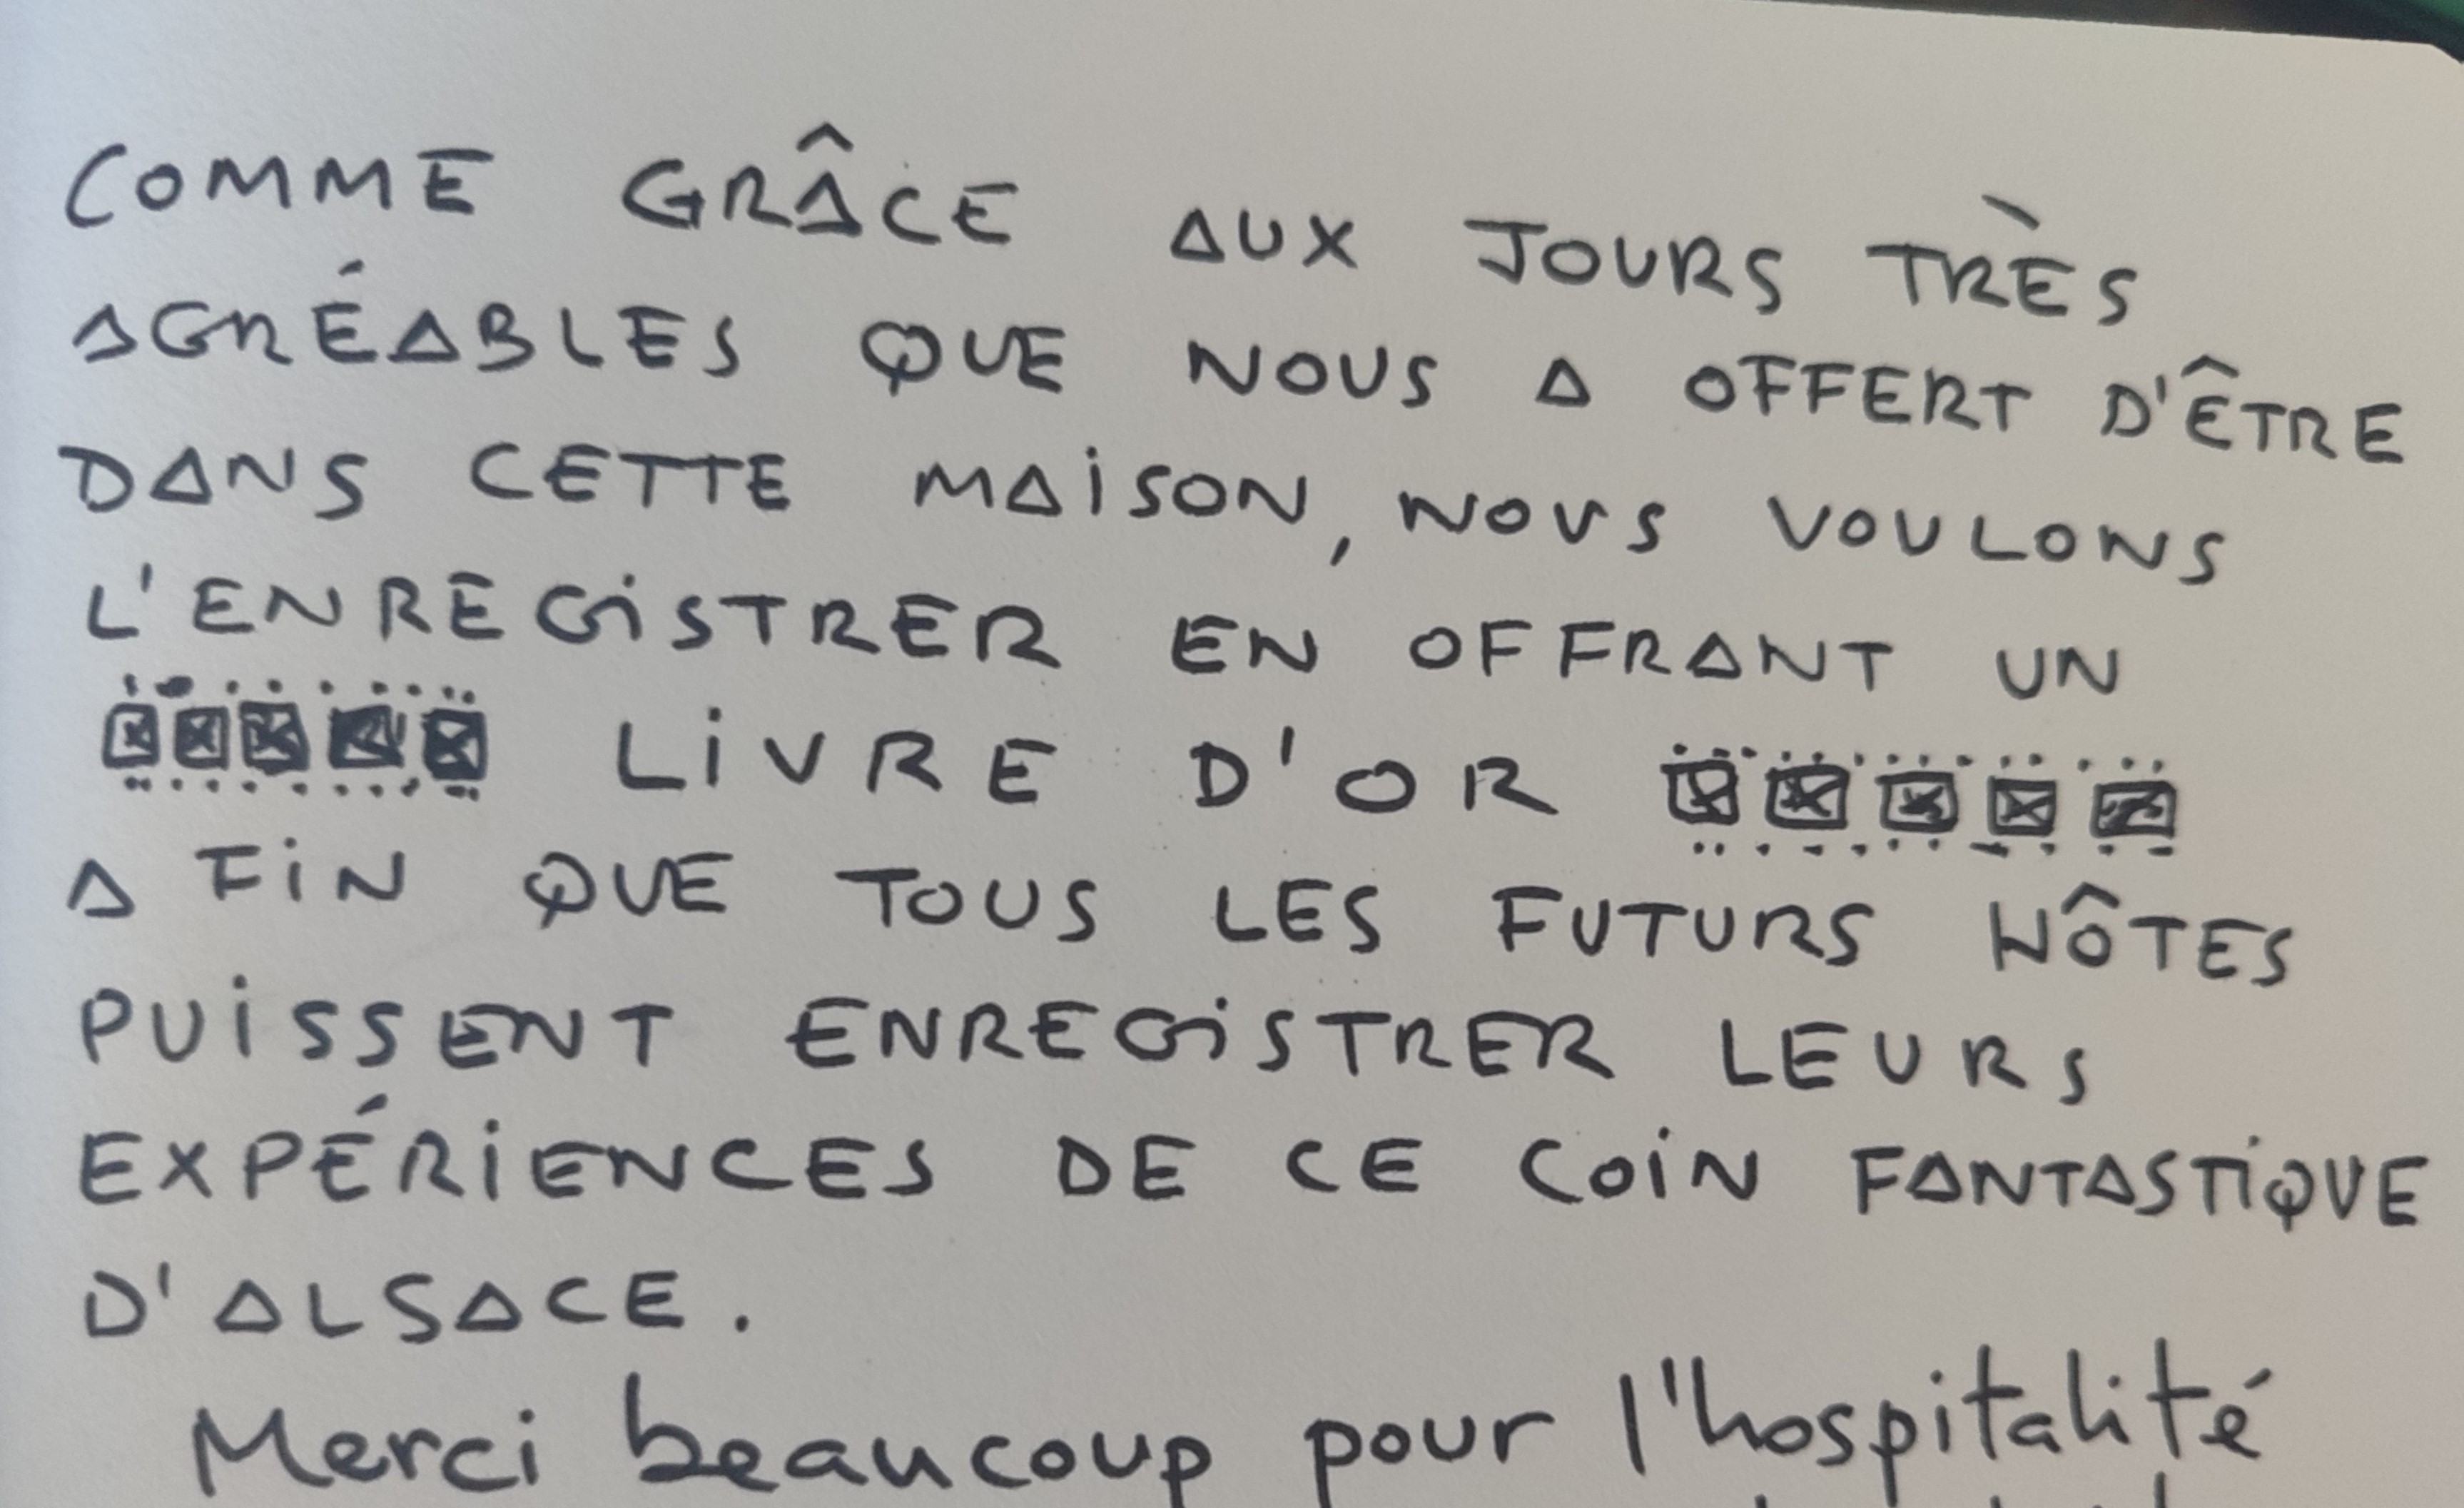 COMME GRÂCE AUX JOURS TRÈS
AGRÉABLES QUE NOUS A OFFERT D'ÊTRE
DANS CETTE MAISON, NOUS VOULONS
L'ENREGISTRER EN OFFRANT UN
LIVRE D'OR
A FIN QUE TOUS LES FUTURS HÔTES
PUISSENT ENREGISTRER LEURS
EXPÉRIENCES DE CE COIN FANTASTIQUE
D'ALSACE.
Merci beaucoup pour l'hospitalité